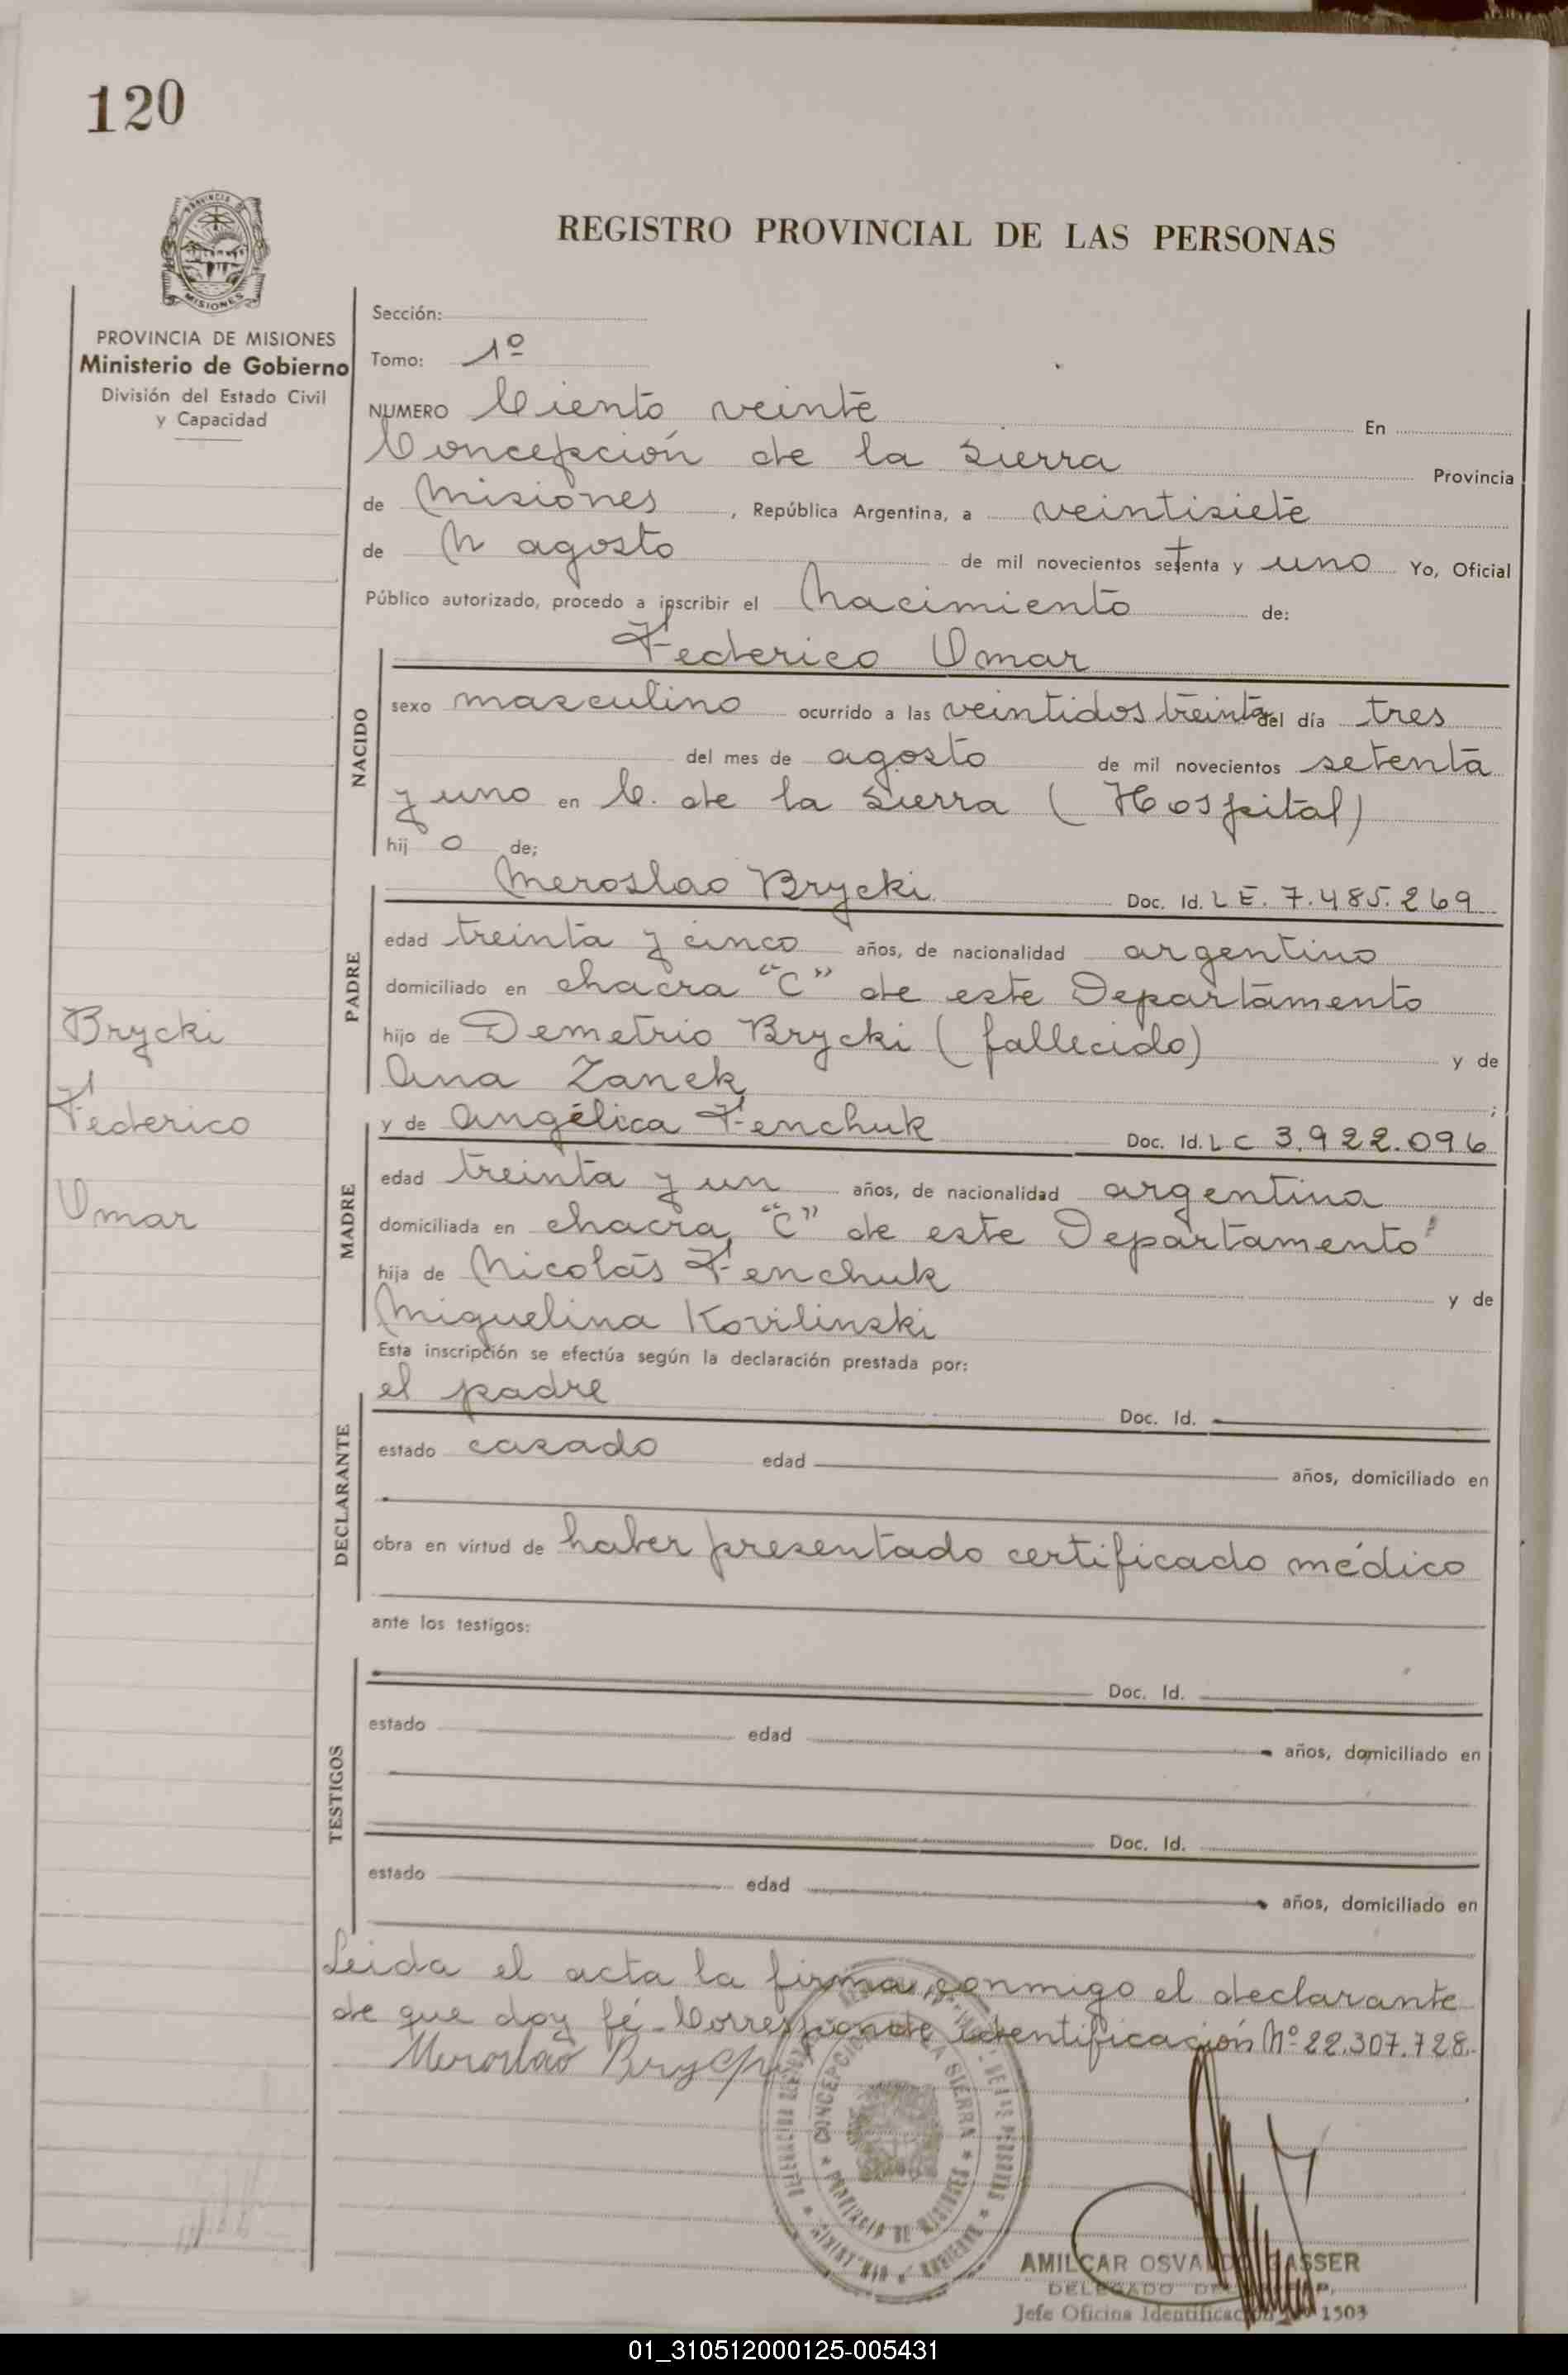 120
REGISTRO PROVINCIAL DE LAS PERSONAS
PROVINCIA DE MISIONES
Ministerio de Gobierno
División del Estado Civil
y Capacidad
Sección:
Tomo: 1º
NUMERO Ciento veinte En
Concepción de la Sierra Provincia
de Misiones, República Argentina, a veintisiete
de agosto de mil novecientos setenta y uno Yo, Oficial
Público autorizado, procedo a inscribir el Nacimiento de:
Federico Omar
NACIDO
sexo masculino ocurrido a las veintidos treinta del día tres
del mes de agosto de mil novecientos setenta
y uno en C. de la Sierra ( Hospital)
hijo de;
PADRE
Meroslao Brycki Doc. Id. L E. 7.485.269
edad treinta y cinco años, de nacionalidad argentino
domiciliado en chacra "C" de este Departamento
hijo de Demetrio Brycki (fallecido) y de
Ana Zanek ;
Brycki
Federico
Omar
MADRE
y de Angélica Fenchuk Doc. Id. L C 3.922.096
edad treinta y un años, de nacionalidad argentina
domiciliada en chacra "C" de este Departamento
hija de Nicolás Fenchuk y de
Miguelina Kovilinski
Esta inscripción se efectúa según la declaración prestada por:
DECLARANTE
el padre Doc. Id.
estado casado edad años, domiciliado en
obra en virtud de haber presentado certificado médico
ante los testigos:
TESTIGOS
Doc. Id.
estado edad años, domiciliado en
Doc. Id.
estado edad años, domiciliado en
Leida el acta la firma conmigo el declarante
de que doy fé - Corresponde identificación Nº 22.307.728.-
Meroslao Brycki
CONCEPCION DE LA SIERRA * PROVINCIA DE MISIONES *
AMILCAR OSVALDO GASSER
DELEGADO
Jefe Oficina Identificación 1503
01_310512000125-005431